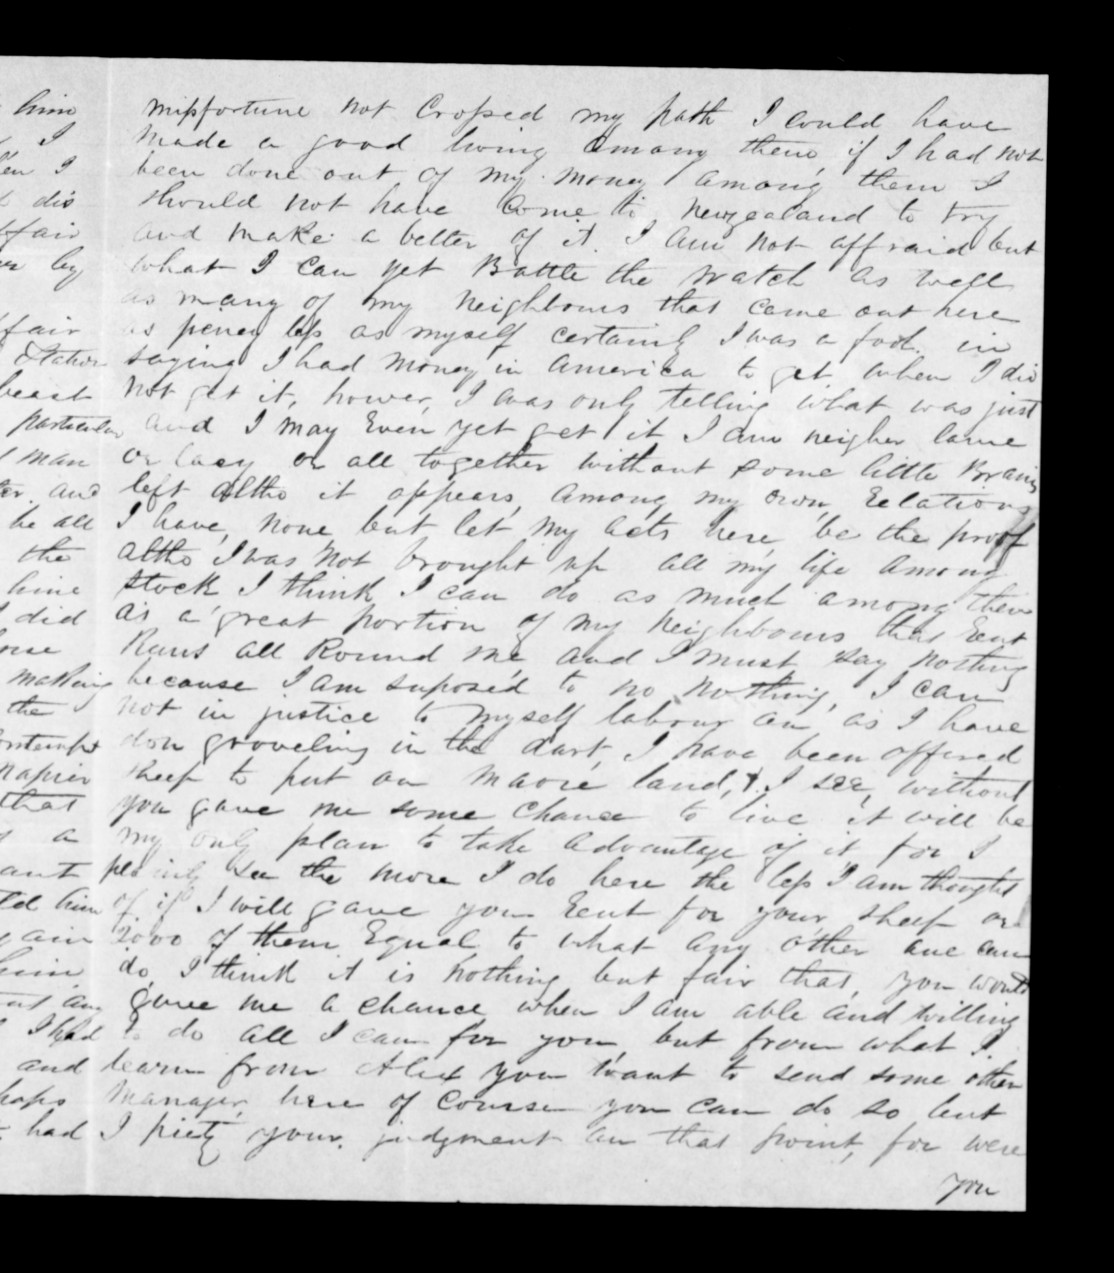 him
I
I
dis
ffair
by
fair
Station
beast
particular
man
and
be all
the
hine
did
making
the
contempt
napier
that
a
ant
told him
gain
him
any
I had
and
haps
had
misfortune not Crossed my path I could have
made a good living among them, if I had not
been done out of my money among them I
should not have Come to Newzealand to try
and make a better of it. I am not affraid but
what I can yet Battle the watch as well
as many of my Neighbours that came out here
as peney less as myself certainly I was a fool in
saying I had money in America to get when I did
not get it, hower, I was only telling what was just
and I may Even yet get it I am neigher lame
or lasy or all together without some little Brains
left altho it appears, among my own, Relations
I have, none but let my acts here be the proof
altho I was not brought up all my life among
stock I think I can do as much among them
as a great portion of my Neighbours that Rent
Runs all Round me and I must say nothing
because I am suposed to no nothing, I can
not in justice to myself labour on as I have
don groveling in the dart, I have been offered
sheep to put on Maorie land, & I see, without
you gave me some chance to live it will be
my only plan to take advantage of it for I
plainly see the more I do here the less I am thought
of if I will gave you Rent for your sheep or
2000 of them Equal to what any other one can
do, I think it is nothing but fair that, you would
gave me a chance when I am able and willing
to do all I can for you, but from what I
learn from Alex you want to send some other
Manager, here of course you can do so but
I piety your judgment on that point, for were
you